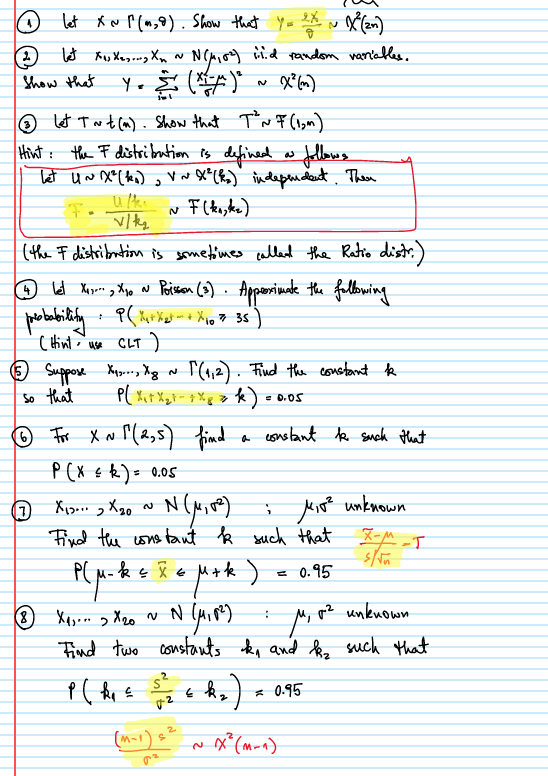 ① Let X ~ Γ(n,θ). Show that Y = 2X/θ ~ χ²(2n)
② Let x₁, x₂, ..., Xₙ ~ N(μ,σ²) i.i.d random variables.
Show that Y = Σᵢ₌₁ⁿ ((xᵢ-μ)/σ)² ~ χ²(n)
③ Let T ~ t(n). Show that T² ~ F(1,n)
Hint: the F distribution is defined as follows
Let U ~ χ²(k₁), V ~ χ²(k₂) independent. Then
F = (U/k₁)/(V/k₂) ~ F(k₁,k₂)
(the F distribution is sometimes called the Ratio distr.)
④ Let X₁, ..., X₁₀ ~ Poisson(3). Approximate the following
probability: P(X₁+X₂+...+X₁₀ ≥ 35)
(Hint: use CLT)
⑤ Suppose X₁, ..., X₈ ~ Γ(1,2). Find the constant k
so that P(X₁+X₂+...+X₈ ≥ k) = 0.05
⑥ For X ~ Γ(2,5) find a constant k such that
P(X ≤ k) = 0.05
⑦ X₁, ..., X₂₀ ~ N(μ,σ²) ; μ,σ² unknown
Find the constant k such that (X̄-μ)/(s/√n) = T
P(μ-k ≤ X̄ ≤ μ+k) = 0.95
⑧ X₁, ..., X₂₀ ~ N(μ,σ²) : μ, σ² unknown
Find two constants k₁ and k₂ such that
P(k₁ ≤ s²/σ² ≤ k₂) = 0.95
(n-1)s²/σ² ~ χ²(n-1)